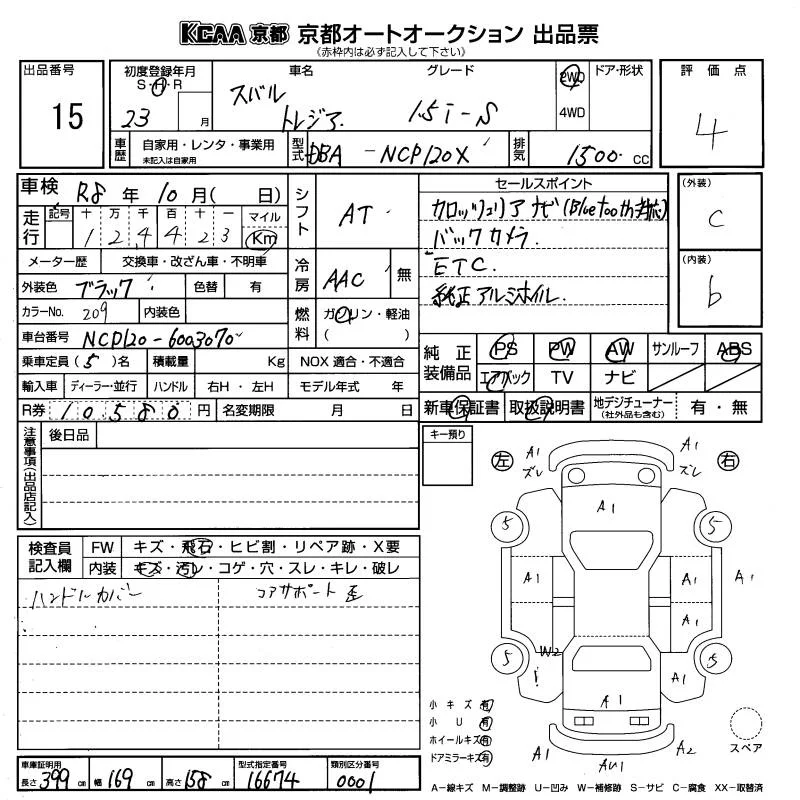 KCAA 京都 京都オートオークション 出品票
《赤枠内は必ず記入して下さい》
出品番号 15
初度登録年月 S・H・R 23 月
車名 スバル トレジア
グレード 1.5i-S
2WD 4WD
ドア・形状
評価点 4
車歴 自家用・レンタ・事業用 未記入は自家用
型式 DBA-NCP120X
排気 1500 cc
車検 R8年 10月( 日)
シフト AT
セールスポイント
カロッツェリア ナビ(Bluetooth対応)
バックカメラ.
ETC.
純正アルミホイル.
(外装) C
(内装) b
走行 記号 十 万 千 百 十 一 マイル Km
1 2 4 4 2 3
メーター歴 交換車・改ざん車・不明車
冷房 AAC 無
外装色 ブラック 色替 有
カラーNo. 209 内装色
燃料 ガソリン・軽油 ( )
車台番号 NCP120-6003070
純正装備品 PS PW AW サンルーフ ABS
エアバック TV ナビ
乗車定員 (5)名 積載量 Kg NOX 適合・不適合
輸入車 ディーラー・並行 ハンドル 右H・左H モデル年式 年
R券 10580 円 名変期限 月 日
新車保証書 取扱説明書 地デジチューナー (社外品も含む) 有・無
注意事項(出品店記入) 後日品
キー預り
左 右
A1 ズレ A1 ズレ
A1
5 5
A1 A1 A1
A1
W2
5 5
! A1
A1
A1 AU1 A2
スペア
検査員記入欄 FW キズ・飛石・ヒビ割・リペア跡・X要
内装 キズ・汚レ・コゲ・穴・スレ・キレ・破レ
ハンドルカバー
コアサポート歪
小キズ 有
小U 有
ホイールキズ 有
ドアミラーキズ 有
車庫証明用 長さ 399 cm 幅 169 cm 高さ 158 cm
型式指定番号 16674
類別区分番号 0001
A-線キズ M-調整跡 U-凹み W-補修跡 S-サビ C-腐食 XX-取替済